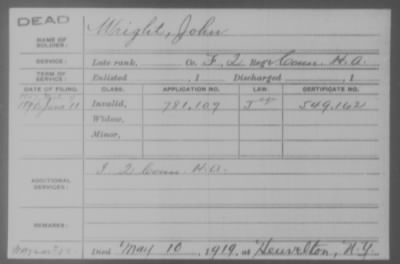 DEAD
NAME OF SOLDIER: Wright, John
SERVICE: Late rank, Co. F, 2 Reg't Conn. H.A.
TERM OF SERVICE: Enlisted , 1 Discharged , 1
DATE OF FILING. CLASS. APPLICATION NO. LAW. CERTIFICATE NO.
1890 June 11 Invalid, 781,107 549,162
Widow,
Minor,
ADDITIONAL SERVICES: I 2 Conn. H.A.
REMARKS:
Died May 10, 1919, at Heuvelton, N.Y.